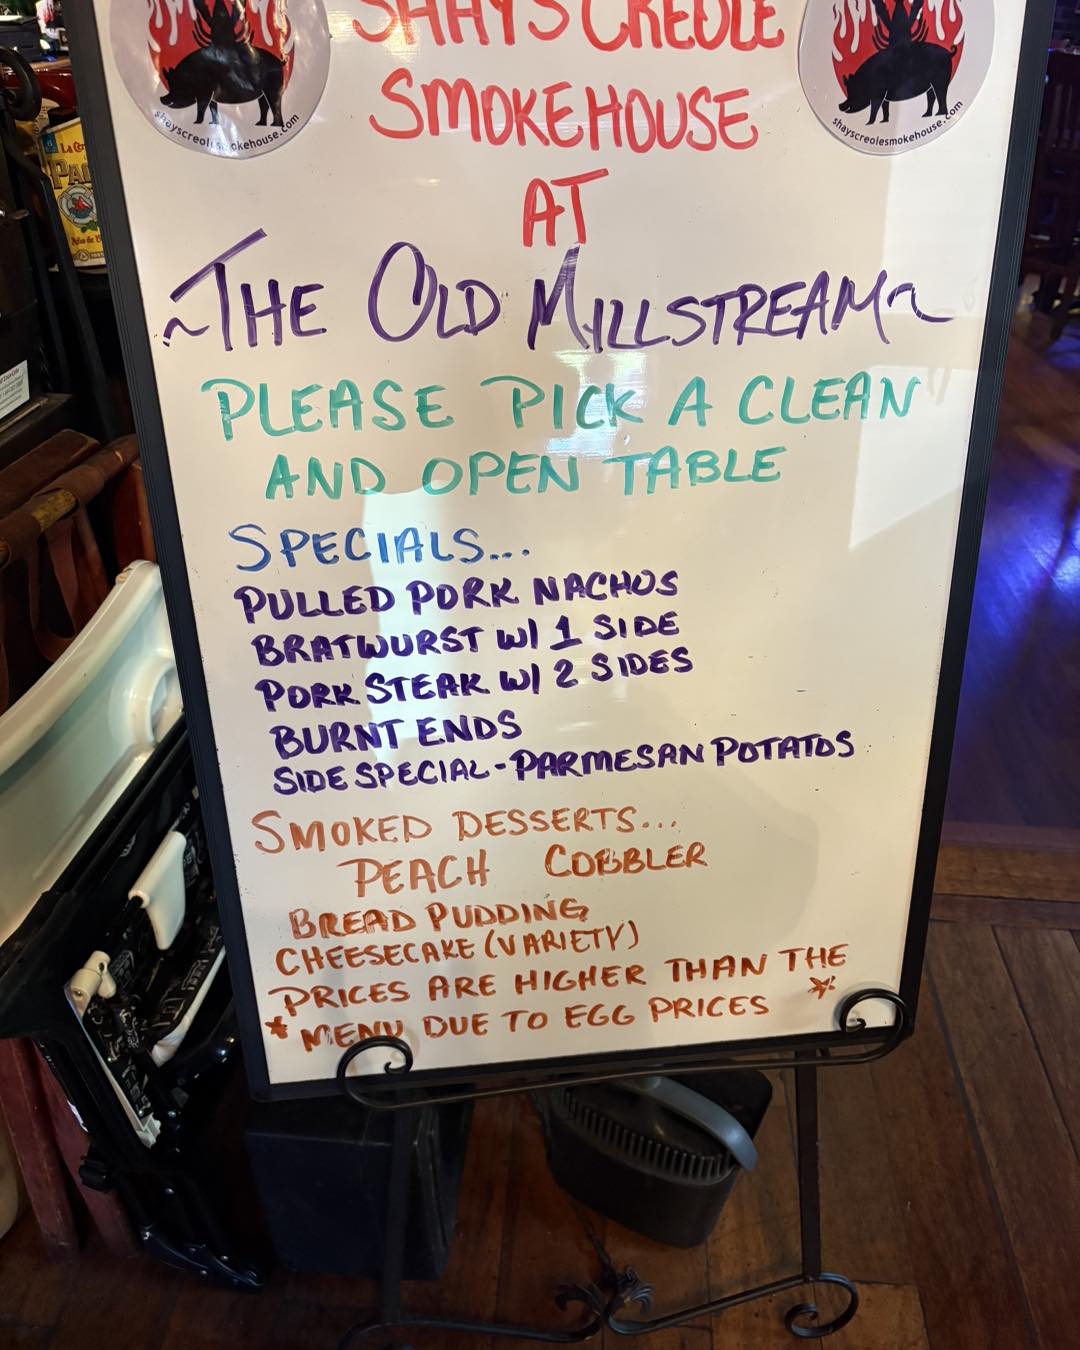 SHAYS CREOLE
SMOKEHOUSE
shayscreolesmokehouse.com
shayscreolesmokehouse.com
AT
~THE OLD MILLSTREAM~
PLEASE PICK A CLEAN
AND OPEN TABLE
SPECIALS...
PULLED PORK NACHOS
BRATWURST W/ 1 SIDE
PORK STEAK W/ 2 SIDES
BURNT ENDS
SIDE SPECIAL - PARMESAN POTATOS
SMOKED DESSERTS...
PEACH COBBLER
BREAD PUDDING
CHEESECAKE (VARIETY)
PRICES ARE HIGHER THAN THE
* MENU DUE TO EGG PRICES *